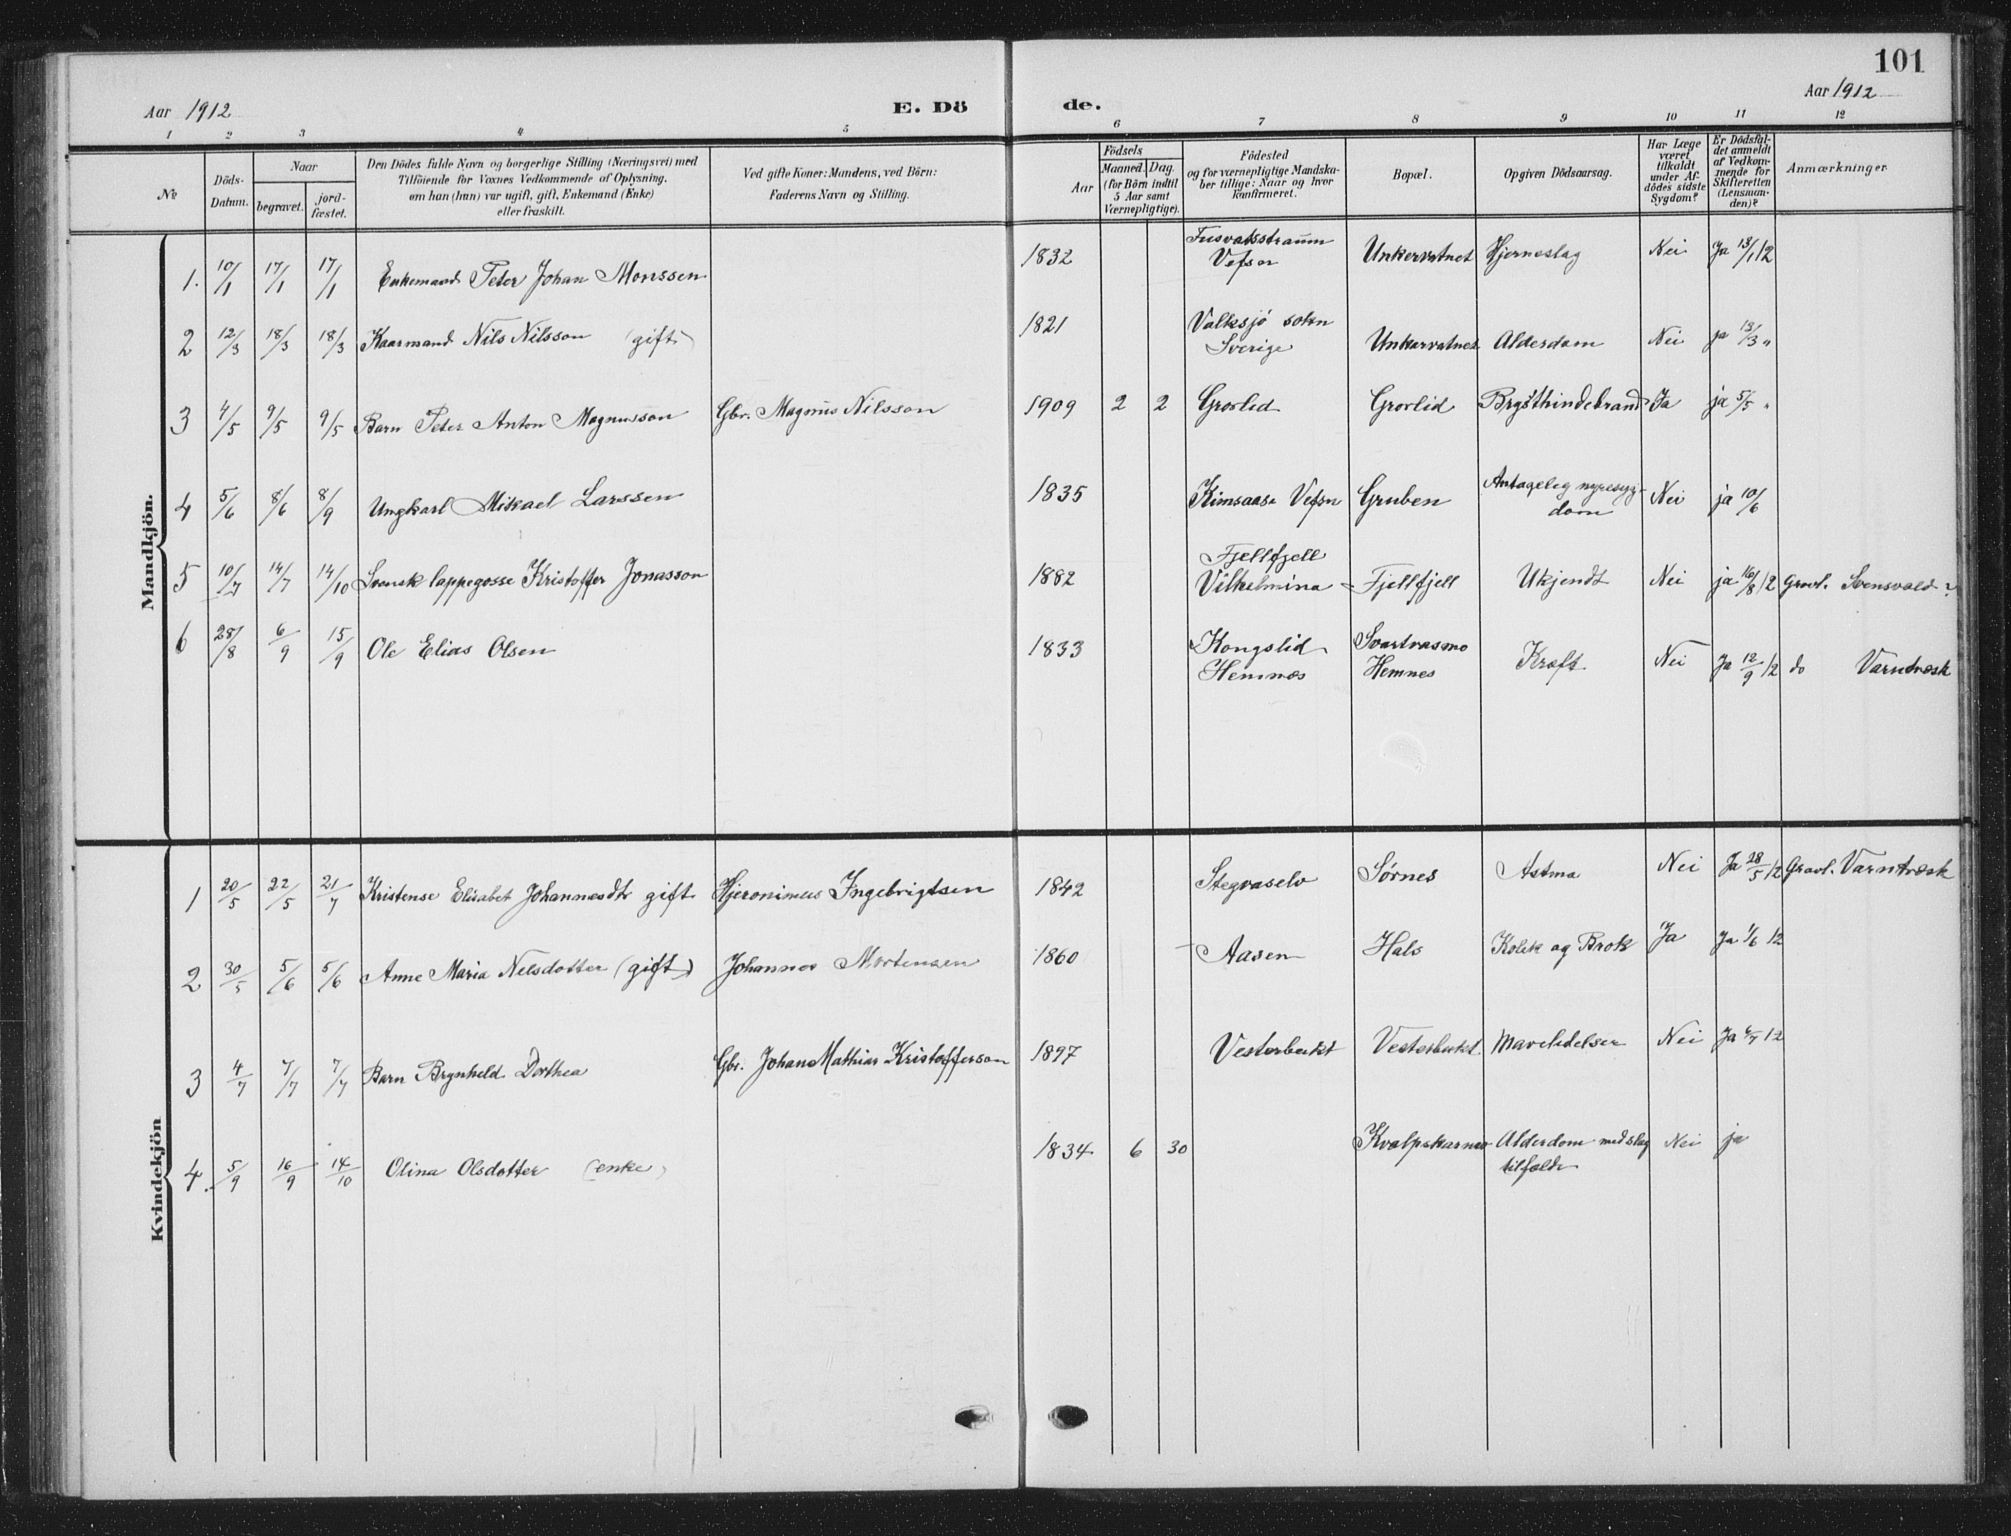 101
Aar 1912 E. Dö de. Aar 1912
1 2 3 4 5 6 7 8 9 10 11 12
№
Döds-
Datum.
Naar
begravet.
jord-
fæstet.
Den Dödes fulde Navn og borgerlige Stilling (Næringsvei) med
Tilföiende for Voxnes Vedkommende af Oplysning.
om han (hun) var ugift, gift, Enkemand (Enke)
eller fraskilt.
Ved gifte Koner: Mandens, ved Börn:
Faderens Navn og Stilling.
Födsels
Aar
Maaned. Dag.
(for Börn indtil
5 Aar samt
Værnepligtige).
Födested
og for værnepligtige Mandska-
ber tillige: Naar og hvor
konfirmeret.
Bopæl.
Opgiven Dödsaarsag.
Har Læge
været
tilkaldt
under Af-
dödes sidste
Sygdom?
Er Dödsfal-
det anmeldt
af Vedkom-
mende for
Skifteretten
(Lensman-
den)?
Anmærkninger.
Mandkjön.
1. 10/1 17/1 17/1 Enkemand Peter Johan Monssen 1832 Fusvatsstraum Vefsn Unkervatnet Hjerneslag Nei Ja 13/1 12
2 12/3 18/3 18/3 Kaarmand Nils Nilsson (gift) 1821 Valksjö sokn Sverige Unkarvatnet Alderdom Nei ja 13/3 "
3 4/5 9/5 9/5 Barn Peter Anton Magnusson Gbr. Magnus Nilsson 1909 2 2 Grovlid Grovlid Brysthindebrand Ja ja 5/5 "
4 5/6 8/6 8/9 Ungkarl Mikael Larssen 1835 Kimsaasa Vefsn Gruben Antageleg nyresyg-
dom Nei ja 10/6
5 10/7 14/7 14/10 Svensk lappegosse Kristoffer Jonasson 1882 Fjellfjell Vilhelmina Fjellfjell Ukjendt Nei ja 16/8 12 Gravl. Svensvold
6 28/8 6/9 15/9 Ole Elias Olsen 1833 Kongslid Hemnes Svartvasmo Hemnes Kræft Nei Ja 12/9 12 do Varntræsk
Kvindekjön
1 20/5 22/5 21/7 Kristense Elisabet Johannesdtr gift Hjeronimus Ingebrigtsen 1842 Stegvaselv Sørnes Astma Nei Ja 28/5 12 Gravl. Varntræsk
2 30/5 5/6 5/6 Anne Maria Nelsdotter (gift) Johannes Mortensen 1860 Aasen Hals Kolik og Brok Ja Ja 1/6 12
3 4/7 7/7 7/7 Barn Brynheld Dorthea Gbr. Johan Mathias Kristofferson 1897 Vesterbukt Vesterbukt. Mavelidelser Nei Ja 6/7 12
4. 5/9 16/9 14/10 Olina Olsdotter (enke) 1834 6 30 Kvalpskarmo Alderdom med slag
tilfælde Nei ja